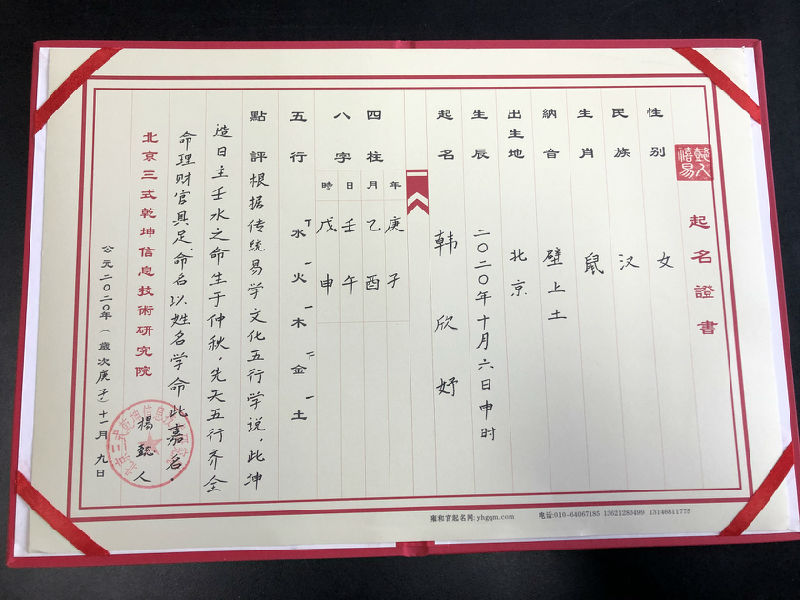 起名證書
性别 女
民族 汉
生肖 鼠
納音 壁上土
出生地 北京
生辰 二〇二〇年十月六日申时
起名 韩欣妤
四柱八字
年 庚子
月 乙酉
日 壬午
時 戊申
五行 水 火 木 金 土
點評 根据传统易学文化五行学说，此坤
造日主壬水之命生于仲秋，先天五行齐全
命理财官具足，命名以姓名学命此嘉名．
北京三式乾坤信息技術研究院
杨懿人
公元二〇二〇年（歲次庚子）十一月九日
雍和宫起名网:yhgqm.com 电话:010-64067185 13621283499